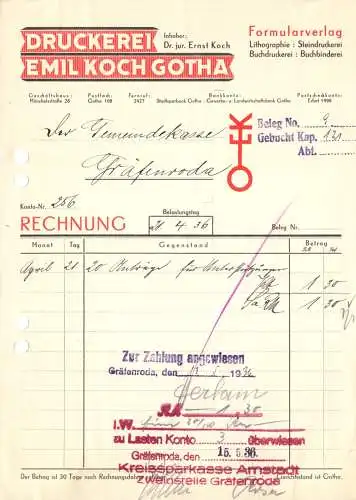 DRUCKEREI
EMIL KOCH GOTHA
Inhaber:
Dr. jur. Ernst Koch
Formularverlag
Lithographie : Steindruckerei
Buchdruckerei : Buchbinderei
Geschäftshaus: Postfach: Fernruf: Bankkonto: Postscheckkonto:
Gotha 108 2427 Stadtsparkasse Gotha : Gewerbe- u. Landwirtschaftsbank Gotha Erfurt 1998
Der Gemeindekasse
Gräfenroda
Beleg No. 9
Gebucht Kap. 131
Abt.
Konto-Nr. 256
RECHNUNG
Belastungstag
21 4 36
Beleg Nr.
Monat Tag Gegenstand Betrag
April 21 20 Anträge für 1 30
1 30
Zur Zahlung angewiesen
Gräfenroda, den 1936
RM 1.30
I.W.
zu Lasten Konto 3 überwiesen
Gräfenroda, den 15. 5. 36.
Kreissparkasse Arnstadt
Zweinstelle Gräfenroda
Der Betrag ist 30 Tage nach Rechnungsdatum ist Gotha.